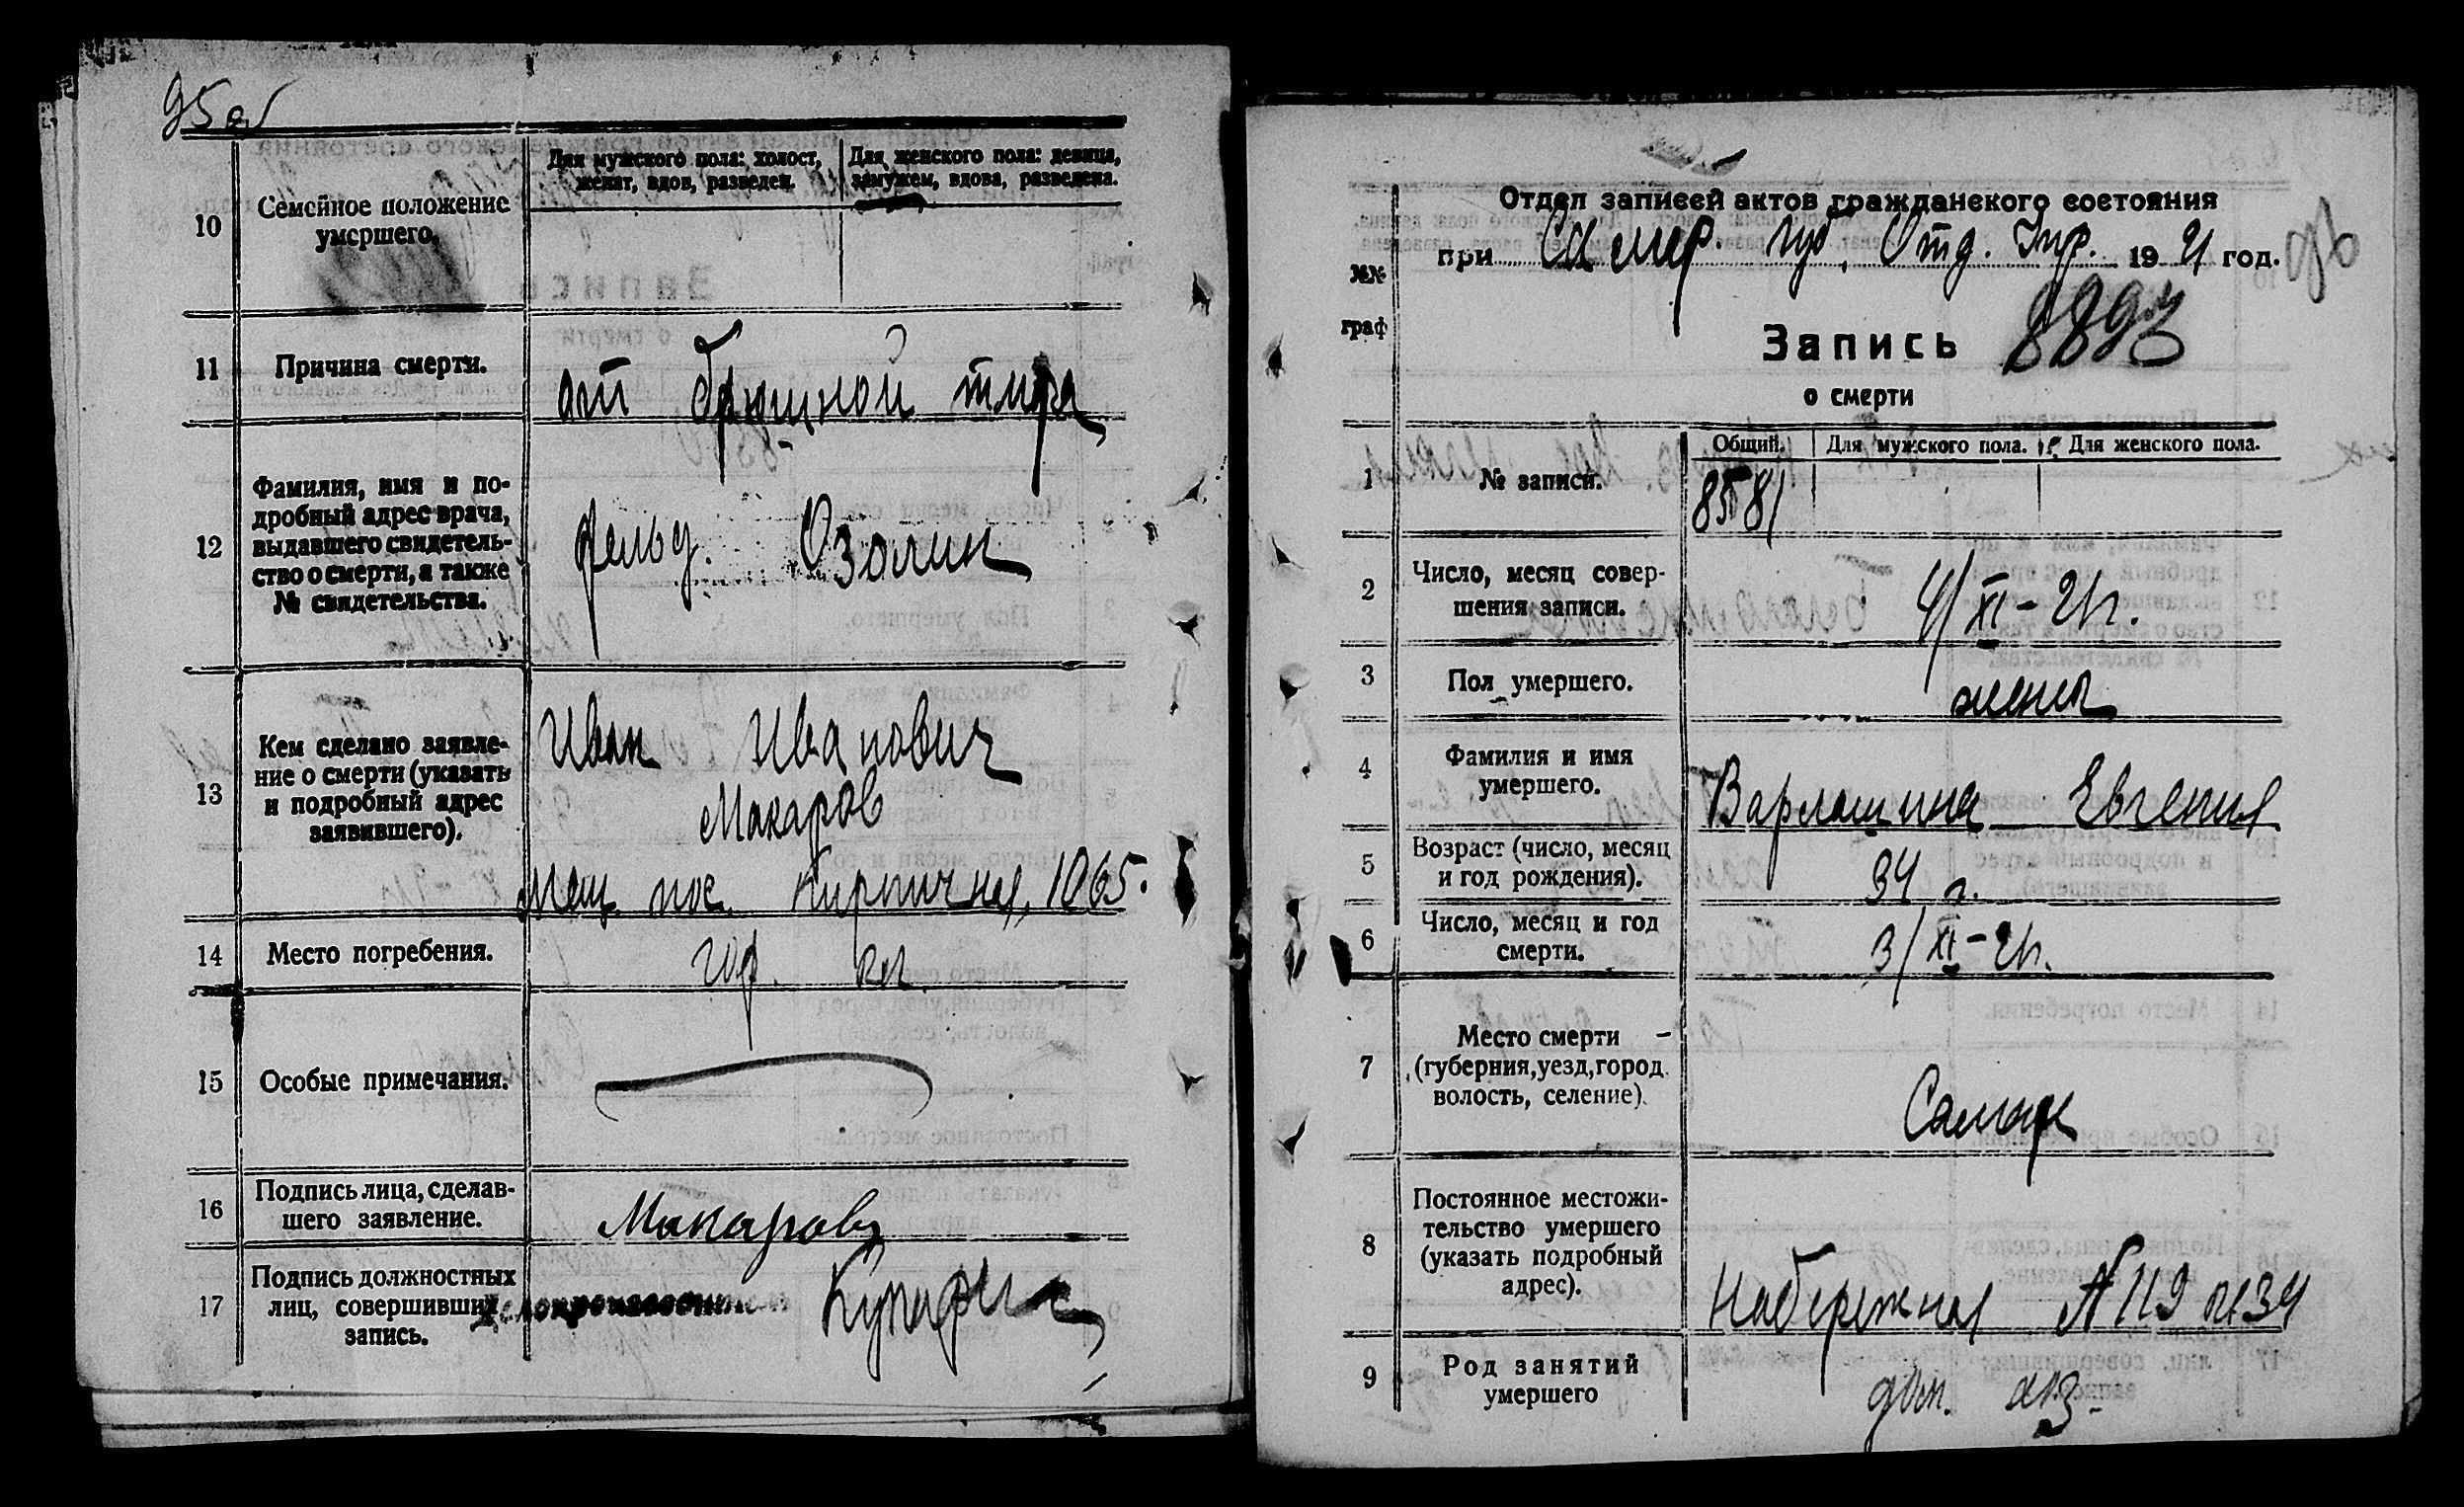 95 об
10
Семейное положение
умершего.
Для мужского пола: холост,
женат, вдов, разведен.
Для женского пола: девица,
замужем, вдова, разведена.
11
Причина смерти.
от брюшной тифа
12
Фамилия, имя и по-
дробный адрес врача,
выдавшего свидетель-
ство о смерти, а также
№ свидетельства.
фельд. Озолин
13
Кем сделано заявле-
ние о смерти (указать
и подробный адрес
заявившего).
Иван Иванович
Макаров
Мещ. пос. Кирпичная, 1065.
14
Место погребения.
гор. кл.
15
Особые примечания.
16
Подпись лица, сделав-
шего заявление.
Макаров
17
Подпись должностных
лиц, совершивших
запись.
Делопроизводитель
96
№№
граф
Отдел записей актов гражданского состояния
при Самар. гу. Отд. Упр. 1921 год.
Запись
о смерти
1
№ записи.
Общий.
Для мужского пола.
Для женского пола.
8581
2
Число, месяц совер-
шения записи.
4/XI-21г.
3
Пол умершего.
женск
4
Фамилия и имя
умершего.
Варлашина Евгения
5
Возраст (число, месяц
и год рождения).
34 г.
6
Число, месяц и год
смерти.
3/XI-21г.
7
Место смерти
(губерния, уезд, город
волость, селение).
Самара
8
Постоянное местожи-
тельство умершего
(указать подробный
адрес).
Набережная № 119 кв 34
9
Род занятий
умершего
дом. хоз.